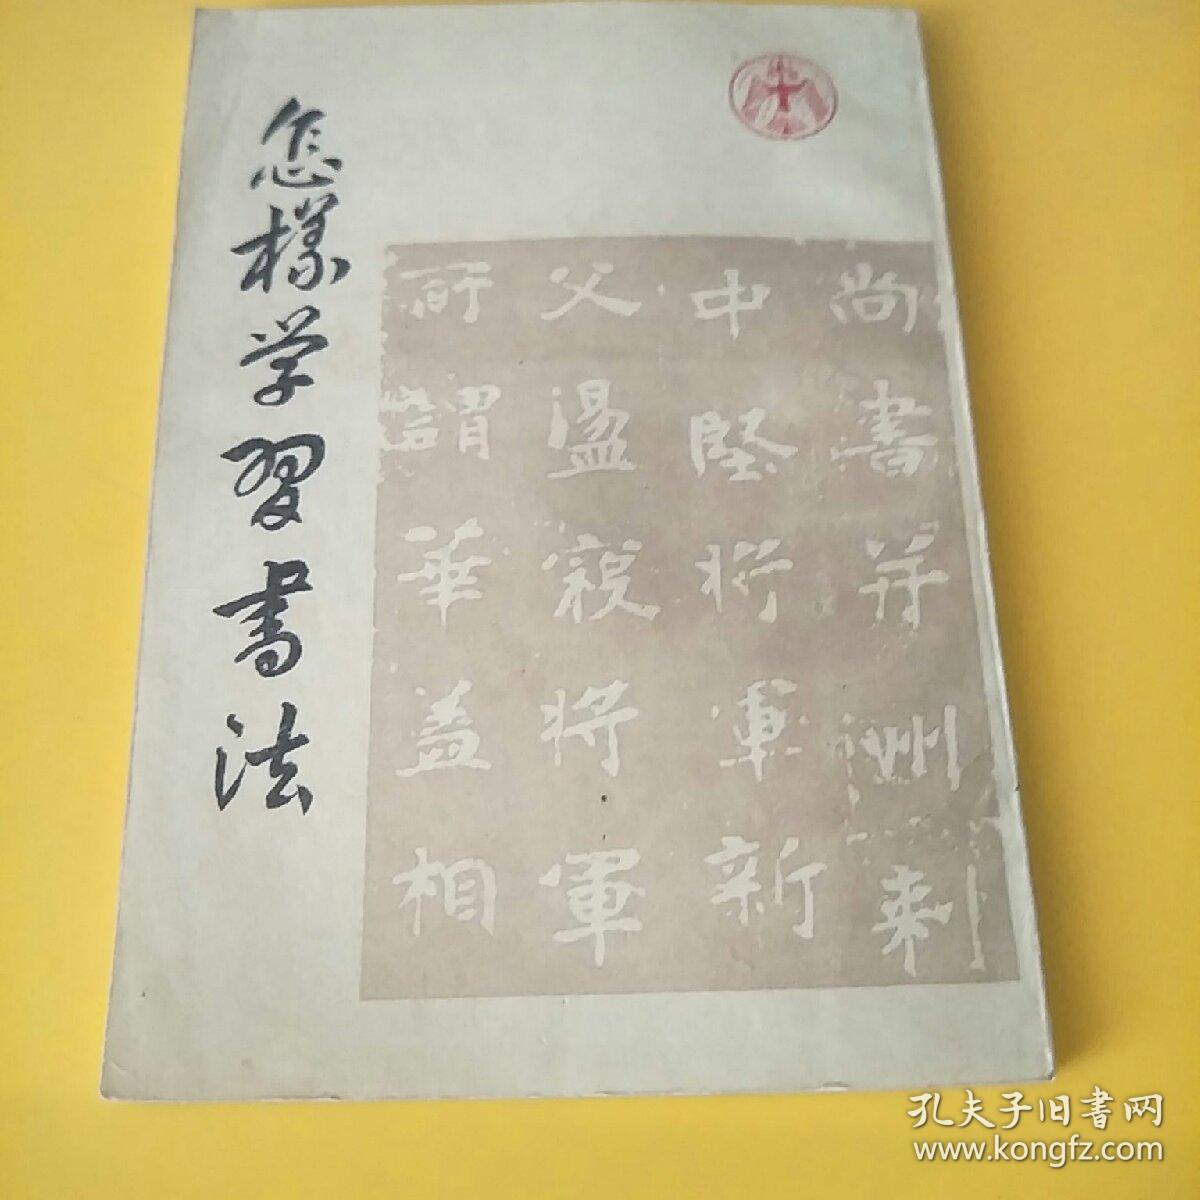 怎样学习書法
尚書并州刺
中堅將軍新
父盪寇將軍
所謂華蓋相
孔夫子旧书网
www.kongfz.com